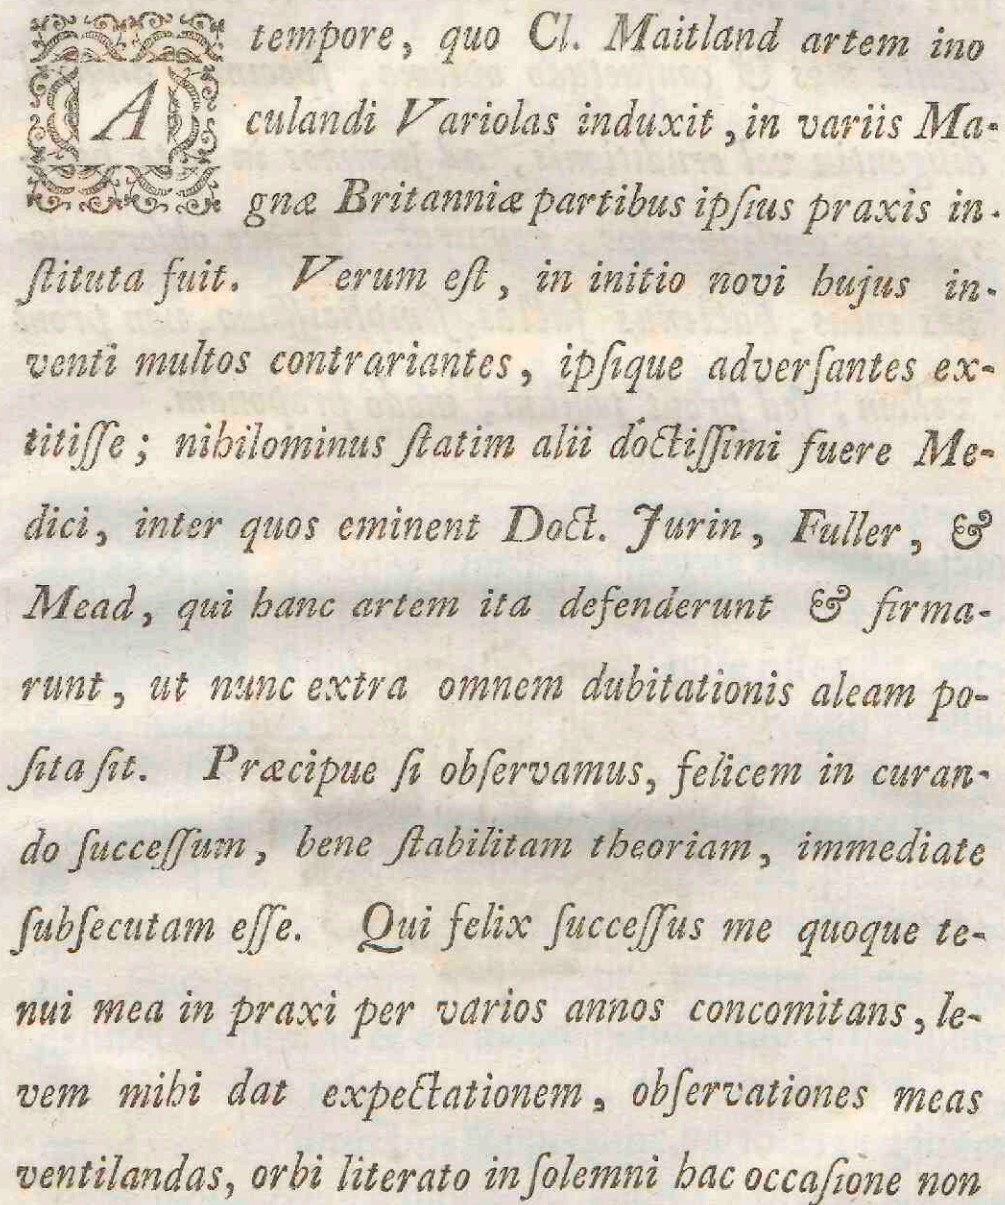 A tempore, quo Cl. Maitland artem ino
culandi Variolas induxit, in variis Ma-
gnæ Britanniæ partibus ipſius praxis in-
ſtituta fuit. Verum eſt, in initio novi hujus in-
venti multos contrariantes, ipſique adverſantes ex-
titiſſe; nihilominus ſtatim alii doctiſſimi fuere Me-
dici, inter quos eminent Doct. Jurin, Fuller, &
Mead, qui hanc artem ita defenderunt & firma-
runt, ut nunc extra omnem dubitationis aleam po-
ſita ſit. Præcipue ſi obſervamus, felicem in curan-
do ſucceſſum, bene ſtabilitam theoriam, immediate
ſubſecutam eſſe. Qui felix ſucceſſus me quoque te-
nui mea in praxi per varios annos concomitans, le-
vem mihi dat expectationem, obſervationes meas
ventilandas, orbi literato in ſolemni hac occaſione non